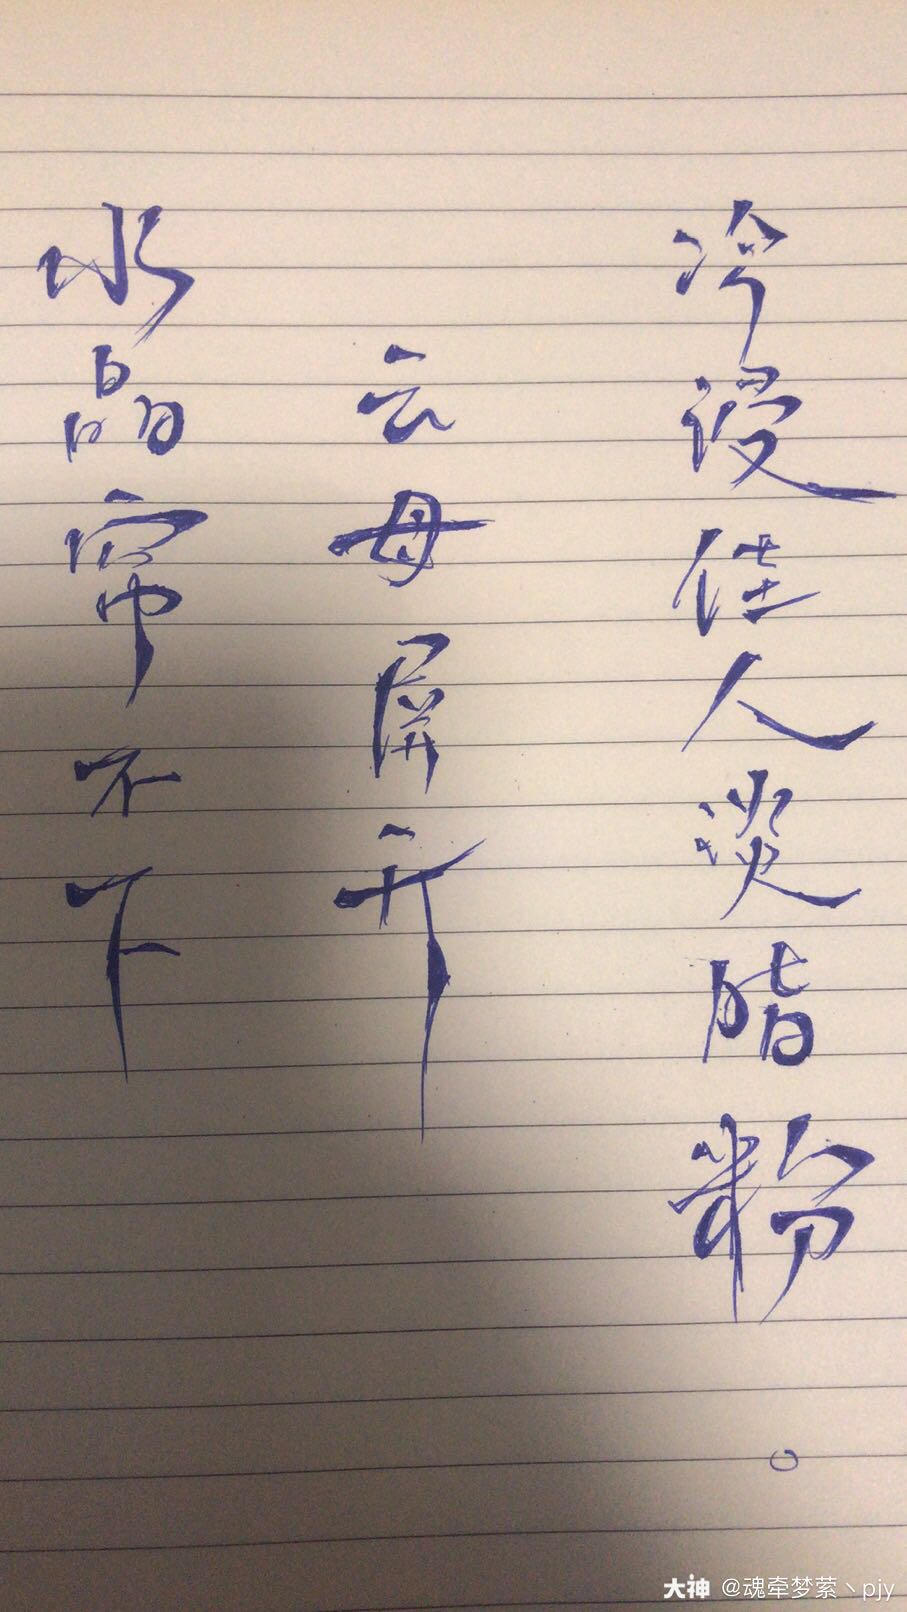 水晶帘不下
云母屏开
冷浸佳人淡脂粉。
大神 @魂牵梦萦丶pjy